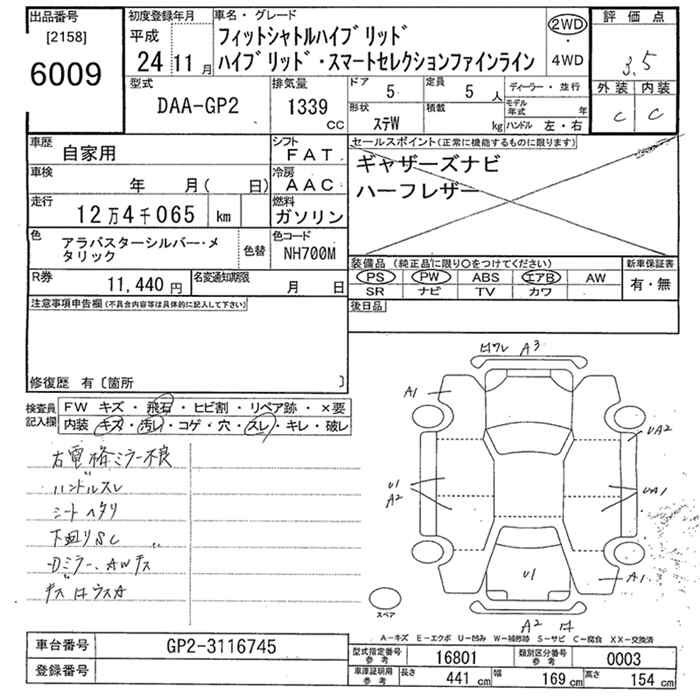 出品番号
[2158]
6009
初度登録年月
平成
24 11 月
車名・グレード
フィットシャトルハイブリッド
ハイブリッド・スマートセレクションファインライン
2WD
・
4WD
評価点
3.5
外装 内装
C C
型式
DAA-GP2
排気量
1339
CC
ドア
5
定員
5 人
ディーラー・並行
形状
ステW
積載
kg
モデル年式 年
ハンドル 左・右
車歴
自家用
シフト
FAT
車検
年 月( 日)
冷房
AAC
走行
12万4千065 km
燃料
ガソリン
色
アラバスターシルバー・メタリック
色替
色コード
NH700M
R券
11,440 円
名変通知期限
月 日
セールスポイント(正常に機能するものに限ります)
ギャザーズナビ
ハーフレザー
装備品 (純正品に限り○をつけてください)
新車保証書
PS PW ABS エアB AW
SR ナビ TV カワ
有・無
注意事項申告欄(不具合内容等は具体的に記入して下さい)
後日品
修復歴 有〔箇所 〕
検査員記入欄
FW キズ・飛石・ヒビ割・リペア跡・×要
内装 キズ・汚レ・コゲ・穴・スレ・キレ・破レ
右電格ミラー不良
ハンドルスレ
シートヘタリ
下廻りSC
Dミラー、AWキズ
A3
A1
UA2
U1
A2
UA1
U1
A1
A2
スペア
A−キズ E−エクボ U−凹み W−補修跡 S−サビ C−腐食 XX−交換済
車台番号
GP2-3116745
登録番号
型式指定番号
参考
16801
類別区分番号
参考
0003
車庫証明用
参考
長さ
441 cm
幅
169 cm
高さ
154 cm